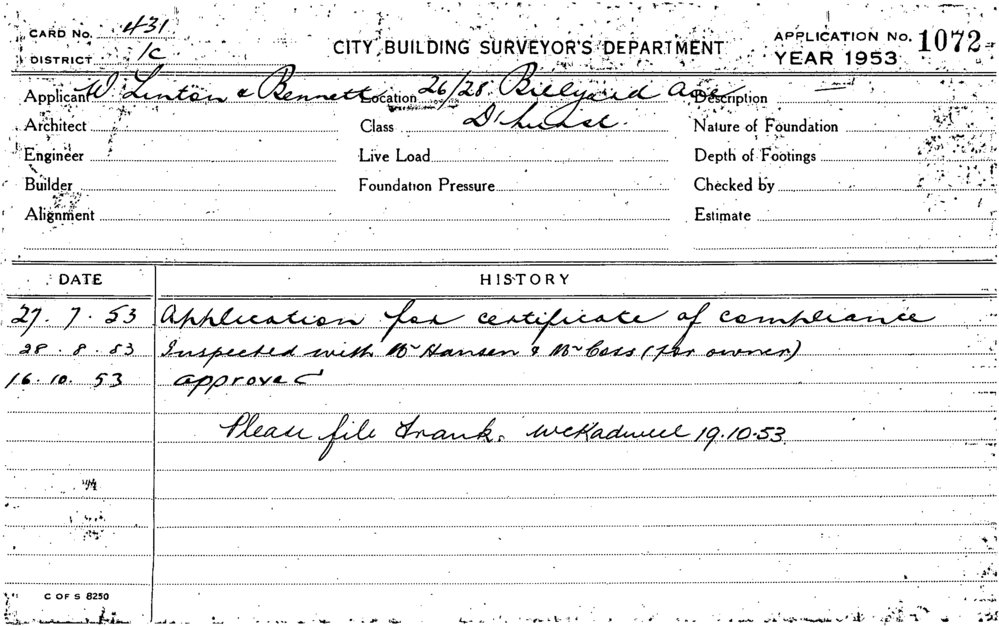 CARD NO. 431
DISTRICT 1C
CITY BUILDING SURVEYOR'S DEPARTMENT
APPLICATION NO. 1072
YEAR 1953
Applicant W. Linton & Bennett Location 26/28 Billyard Ave Description
Architect Class D'hurst. Nature of Foundation
Engineer Live Load Depth of Footings
Builder Foundation Pressure Checked by
Alignment Estimate
DATE HISTORY
27. 7. 53 Application for certificate of compliance
28. 8. 53 Inspected with Mr Hansen & Mr Coss (for owner)
16. 10. 53 approved
Please file Frank. 19.10.53
C OF S 8250